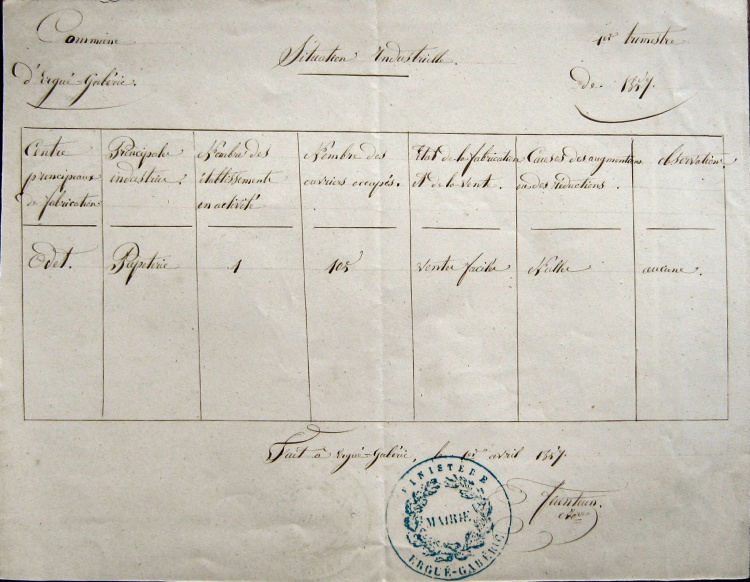 Commune
d'Ergué-Gabéric.
Situation Industrielle.
1er trimestre
de 1857.
Centre
principaux
de fabrication
Principale
industrie.
Nombre des
établissements
en activité
Nombre des
ouvriers occupés.
Etat de la fabrication
et de la vente.
Causes des augmentations
ou des réductions.
observation.
Odet.
Papeterie
1
105
Vente facile
Nulle
aucune.
Fait à Ergué-Gabéric, le 1er avril 1857.
FINISTERE
MAIRIE
ERGUÉ-GABÉRIC